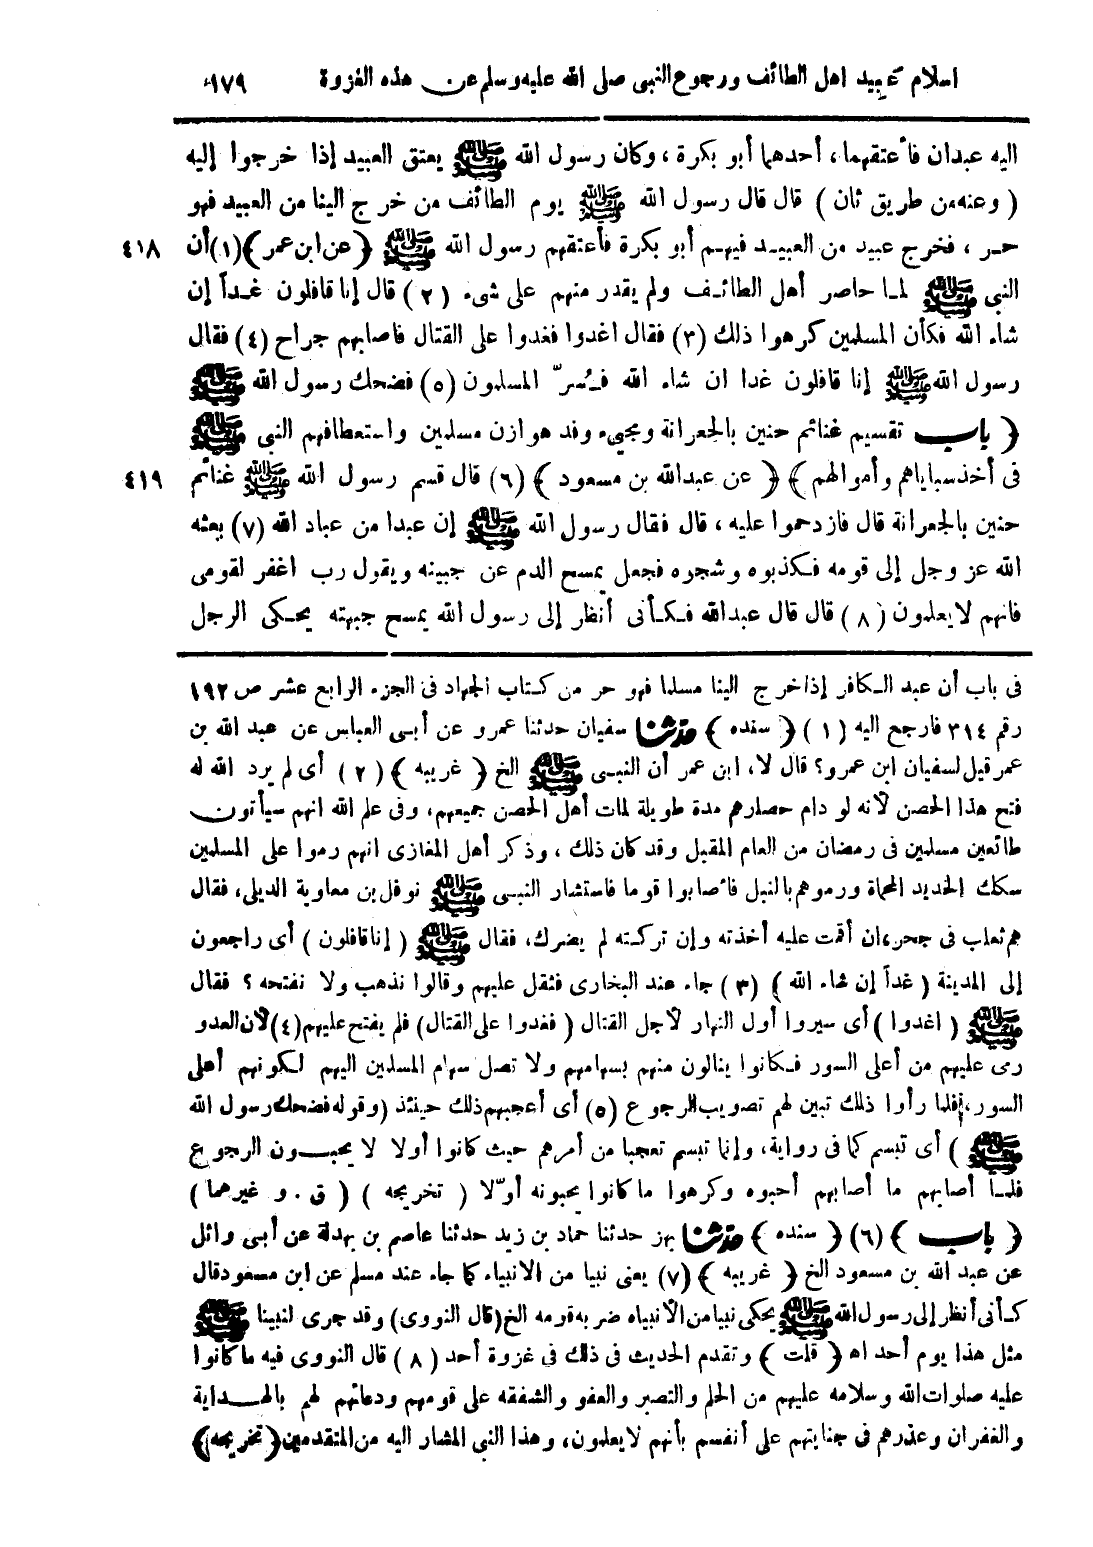 اسلام عبيد اهل الطائف ورجوع النبى صلى الله عليه وسلم عن هذه الغزوة ١٧٩
اليه عبدان فأعتقهما، أحدهما أبو بكرة، وكان رسول الله ﷺ يعتق العبيد إذا خرجوا إليه
(وعنه من طريق ثان) قال قال رسول الله ﷺ يوم الطائف من خرج الينا من العبيد فهو
حر، فخرج عبيد من العبيد فيهم أبو بكرة فأعتقهم رسول الله ﷺ (عن ابن عمر)(١) أن ٤١٨
النبى ﷺ لما حاصر أهل الطائف ولم يقدر منهم على شىء (٢) قال إنا قافلون غداً إن
شاء الله فكأن المسلمين كرهوا ذلك (٣) فقال اغدوا فغدوا على القتال فاصابهم جراح (٤) فقال
رسول الله ﷺ إنا قافلون غدا ان شاء الله فسُرّ المسلمون (٥) فضحك رسول الله ﷺ
(باب تقسيم غنائم حنين بالجعرانة ومجىء وفد هوازن مسلمين واستعطافهم النبى ﷺ
فى أخذ سباياهم وأموالهم) (عن عبدالله بن مسعود) (٦) قال قسم رسول الله ﷺ غنائم ٤١٩
حنين بالجعرانة قال فازدحموا عليه، قال فقال رسول الله ﷺ إن عبدا من عباد الله (٧) بعثه
الله عز وجل إلى قومه فكذبوه وشجره فجعل يمسح الدم عن جبينه ويقول رب اغفر لقومى
فانهم لا يعلمون (٨) قال قال عبدالله فكأنى أنظر إلى رسول الله يمسح جبهته يحكى الرجل
فى باب أن عبد الكافر إذا خرج الينا مسلما فهو حر من كتاب الجهاد فى الجزء الرابع عشر ص ١٩٢
رقم ٣١٤ فارجع اليه (١) (سنده) حدثنا سفيان حدثنا عمرو عن أبى العباس عن عبد الله بن
عمر قيل لسفيان ابن عمرو؟ قال لا، ابن عمر أن النبى ﷺ الخ (غريبه) (٢) أى لم يرد الله له
فتح هذا الحصن لأنه لو دام حصارهم مدة طويلة لمات أهل الحصن جميعهم، وفى علم الله انهم سيأتون
طائعين مسلمين فى رمضان من العام المقبل وقد كان ذلك، وذكر أهل المغازى انهم رموا على المسلمين
سكك الحديد المحماة ورموهم بالنبل فأصابوا قوما فاستشار النبى ﷺ نوفل بن معاوية الديلى، فقال
هم ثعلب فى جحر، ان أقمت عليه أخذته وإن تركته لم يضرك، فقال ﷺ (إنا قافلون) أى راجعون
إلى المدينة (غداً إن شاء الله) (٣) جاء عند البخارى فثقل عليهم وقالوا نذهب ولا نفتحه؟ فقال
ﷺ (اغدوا) أى سيروا أول النهار لأجل القتال (فغدوا على القتال) فلم يفتح عليهم (٤) لأن العدو
رى عليهم من أعلى السور فكانوا ينالون منهم بسهامهم ولا تصل سهام المسلمين اليهم لكونهم أعلى
السور، فلما رأوا ذلك تبين لهم تصويب الرجوع (٥) أى أعجبهم ذلك حينئذ (وقوله فضحك رسول الله
ﷺ) أى تبسم كما فى رواية، وإنما تبسم تعجبا من أمرهم حيث كانوا أولا لا يحبون الرجوع
فلما أصابهم ما أصابهم أحبوه وكرهوا ما كانوا يحبونه أوّلا (تخريجه) (ق. و غيرهما)
(باب) (٦) (سنده) حدثنا بهز حدثنا حماد بن زيد حدثنا عاصم بن بهدلة عن أبى وائل
عن عبد الله بن مسعود الخ (غريبه) (٧) يعنى نبيا من الانبياء كما جاء عند مسلم عن ابن مسعود قال
كأنى أنظر إلى رسول الله ﷺ يحكى نبيا من الأنبياء ضربه قومه الخ (قال النووى) وقد جرى لنبينا ﷺ
مثل هذا يوم أحد اه (قلت) وتقدم الحديث فى ذلك فى غزوة أحد (٨) قال النووى فيه ما كانوا
عليه صلوات الله وسلامه عليهم من الحلم والتصبر والعفو والشفقه على قومهم ودعائهم لهم بالهداية
والغفران وعذرهم فى جنايتهم على أنفسم بأنهم لا يعلمون، وهذا النبى المشار اليه من المتقدمين (تخريجه)